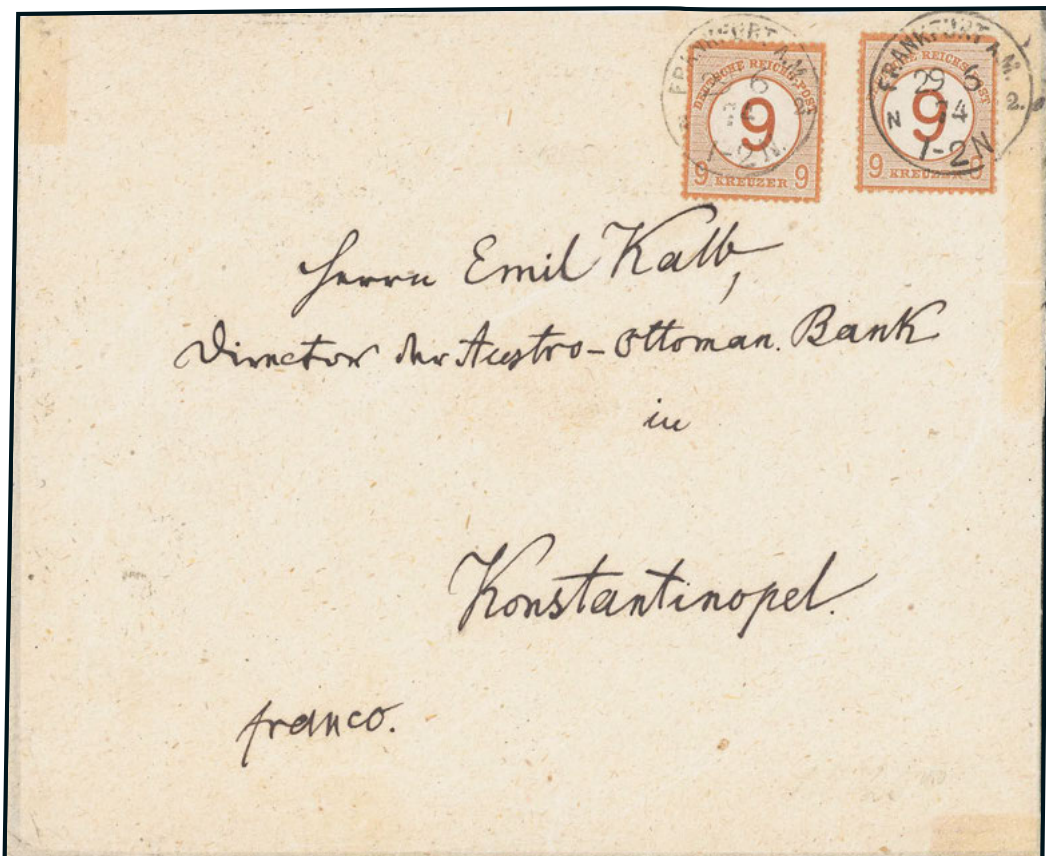 FRANKFURT A.M.
6
1-2N
DEUTSCHE REICHS-POST
9
9 KREUZER 9
FRANKFURT A.M.
29 6
N 74 2.
1-2N
REICHS POST
9
9 KREUZER 9
Herrn Emil Kalb,
Director der Austro-Ottoman. Bank
in
Konstantinopel.
franco.